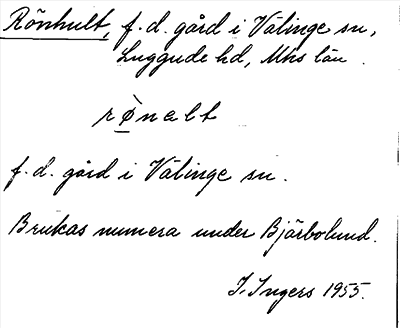 Rönhult, f. d. gård i Välinge sn,
Luggude hd, Mhs län.
rø̀nalt
f. d. gård i Välinge sn.
Brukas numera under Bjärbolund.
I. Ingers 1955.